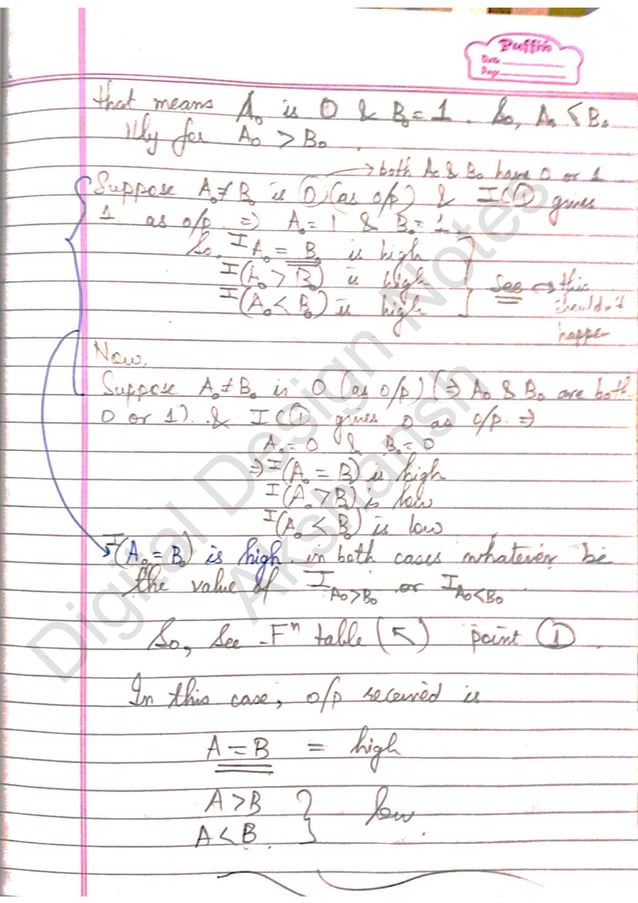 Puffin
Date
Page
that means A₀ is 0 & B₀ = 1. So, A₀ < B₀
lly for A₀ > B₀.
→ both A₀ & B₀ have 0 or 1
Suppose A₀ ≠ B₀ is 0 (as o/p) & I① gives
1 as o/p ⇒ A₀ = 1 & B₀ = 1
So, I A₀ = B₀ is high
I(A₀ > B₀) is high
I(A₀ < B₀) is high
See → this
shouldn't
happen
Now,
Suppose A₀ ≠ B₀ is 0 (as o/p) (⇒ A₀ & B₀ are both
0 or 1) & I① gives 0 as o/p ⇒
A₀ = 0 & B₀ = 0
⇒ I(A₀ = B₀) is high
I(A₀ > B₀) is low
I(A₀ < B₀) is low
I(A₀ = B₀) is high in both cases whatever be
the value of I A₀>B₀ or I A₀<B₀
So, See Fⁿ table (↖) point ①
In this case, o/p received is
A = B = high
A > B } low
A < B
Digital Design Notes
Akshansh